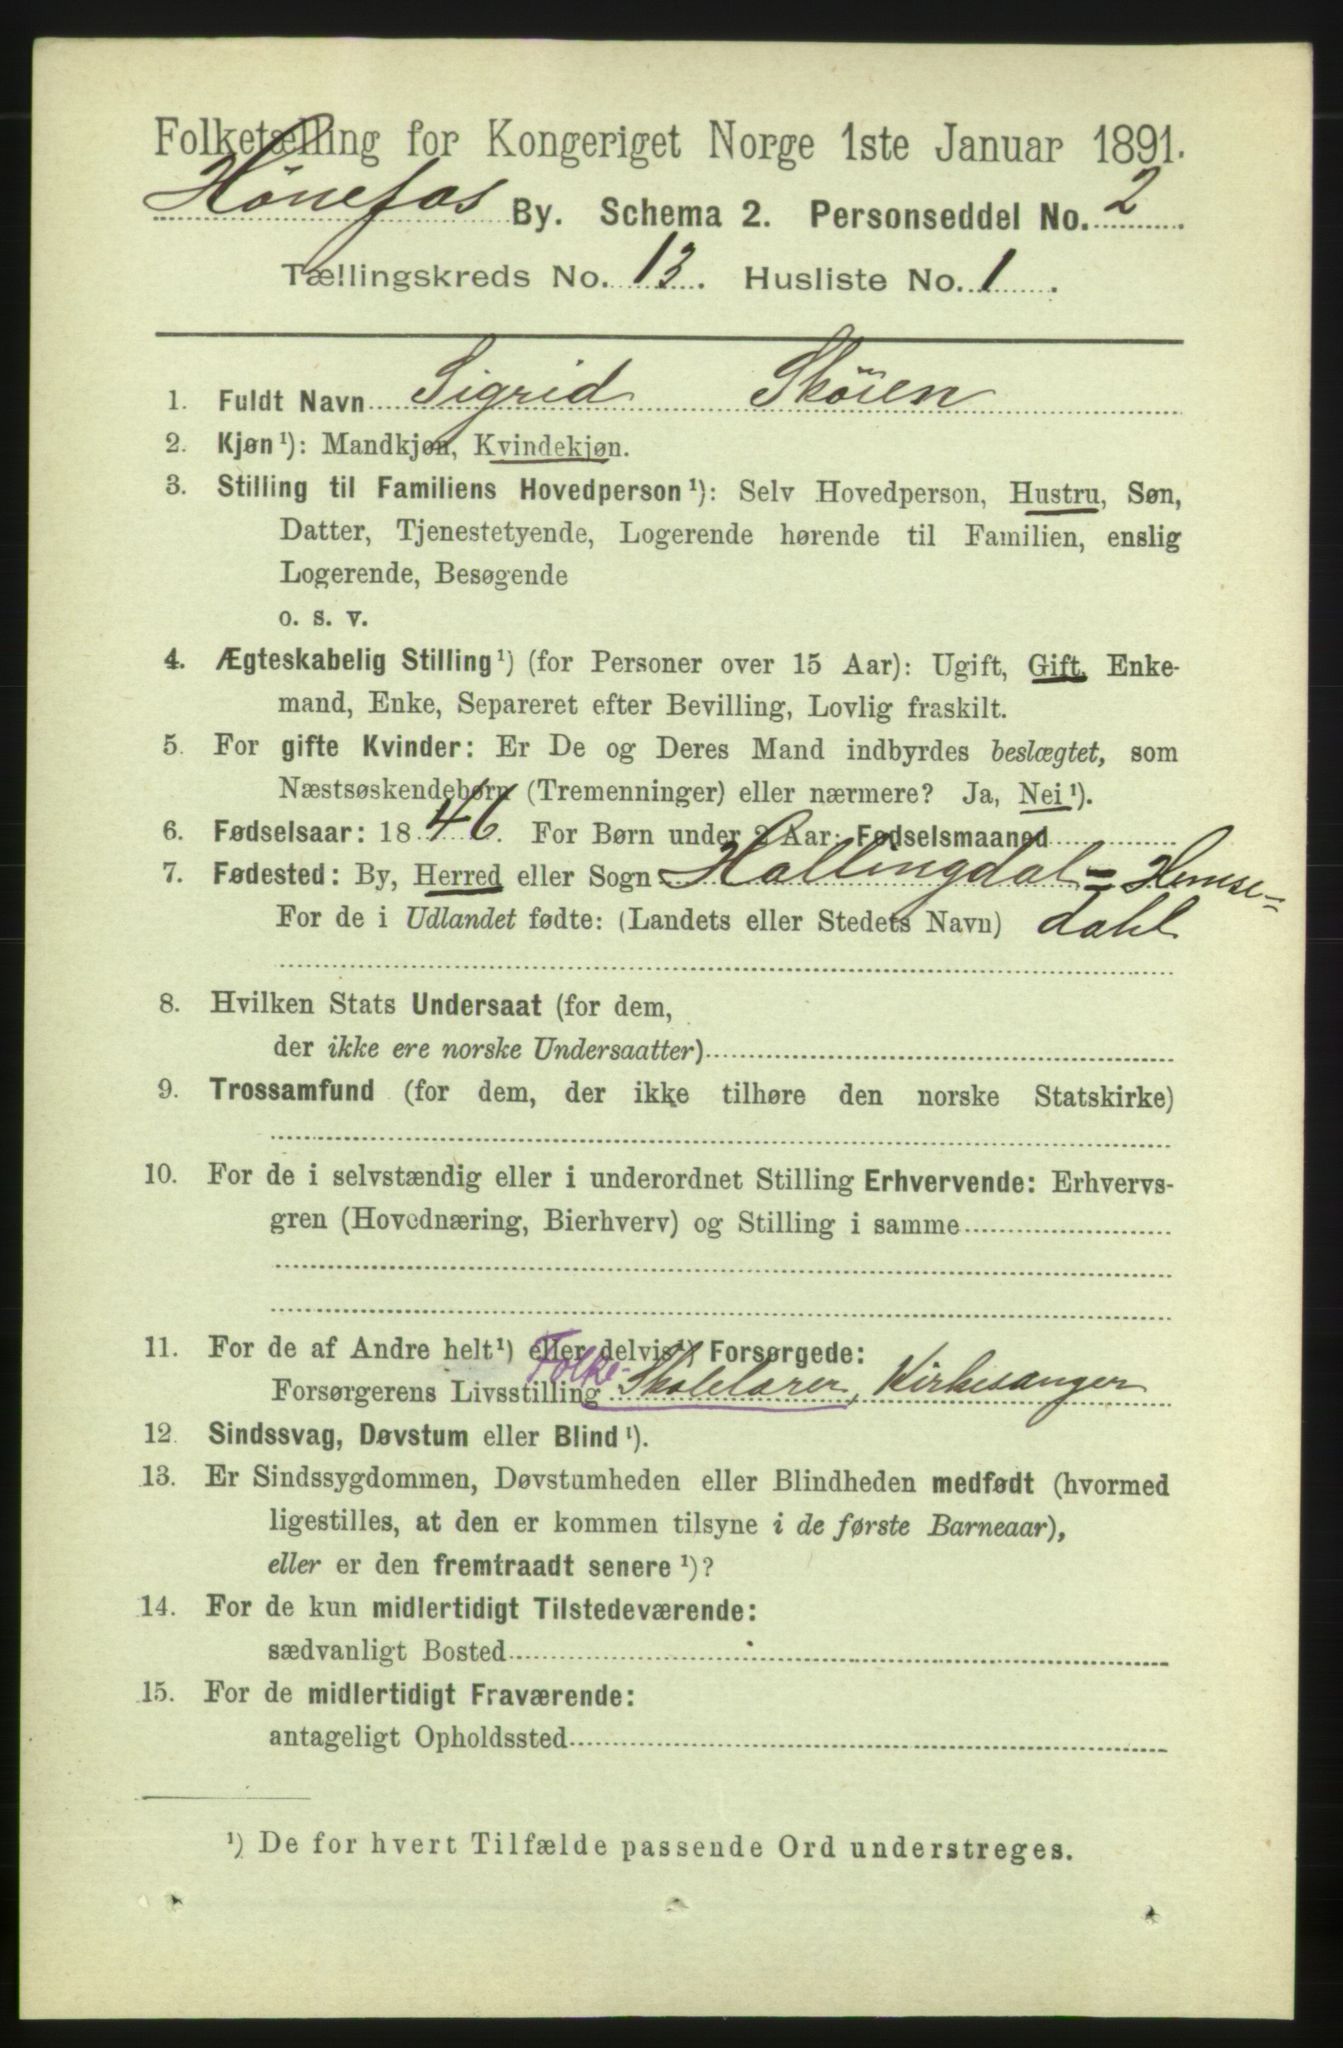 Folketælling for Kongeriget Norge 1ste Januar 1891.
Hönefos By. Schema 2. Personseddel No. 2
Tællingskreds No. 13. Husliste No. 1.
1. Fuldt Navn Sigrid Sköien
2. Kjøn¹): Mandkjøn, Kvindekjøn.
3. Stilling til Familiens Hovedperson¹): Selv Hovedperson, Hustru, Søn,
Datter, Tjenestetyende, Logerende hørende til Familien, enslig
Logerende, Besøgende
o. s. v.
4. Ægteskabelig Stilling¹) (for Personer over 15 Aar): Ugift, Gift, Enke-
mand, Enke, Separeret efter Bevilling, Lovlig fraskilt.
5. For gifte Kvinder: Er De og Deres Mand indbyrdes beslægtet, som
Næstsøskendebørn (Tremenninger) eller nærmere? Ja, Nei¹).
6. Fødselsaar: 1846. For Børn under 2 Aar: Fødselsmaaned
7. Fødested: By, Herred eller Sogn Hallingdal = Hemse=
For de i Udlandet fødte: (Landets eller Stedets Navn) dahl
8. Hvilken Stats Undersaat (for dem,
der ikke ere norske Undersaatter)
9. Trossamfund (for dem, der ikke tilhøre den norske Statskirke)
10. For de i selvstændig eller i underordnet Stilling Erhvervende: Erhvervs-
gren (Hovednæring, Bierhverv) og Stilling i samme
11. For de af Andre helt¹) eller delvis¹) Forsørgede:
Forsørgerens Livsstilling Folke- Skolelærer, Kirkesanger
12. Sindssvag, Døvstum eller Blind¹).
13. Er Sindssygdommen, Døvstumheden eller Blindheden medfødt (hvormed
ligestilles, at den er kommen tilsyne i de første Barneaar),
eller er den fremtraadt senere¹)?
14. For de kun midlertidigt Tilstedeværende:
sædvanligt Bosted
15. For de midlertidigt Fraværende:
antageligt Opholdssted
¹) De for hvert Tilfælde passende Ord understreges.